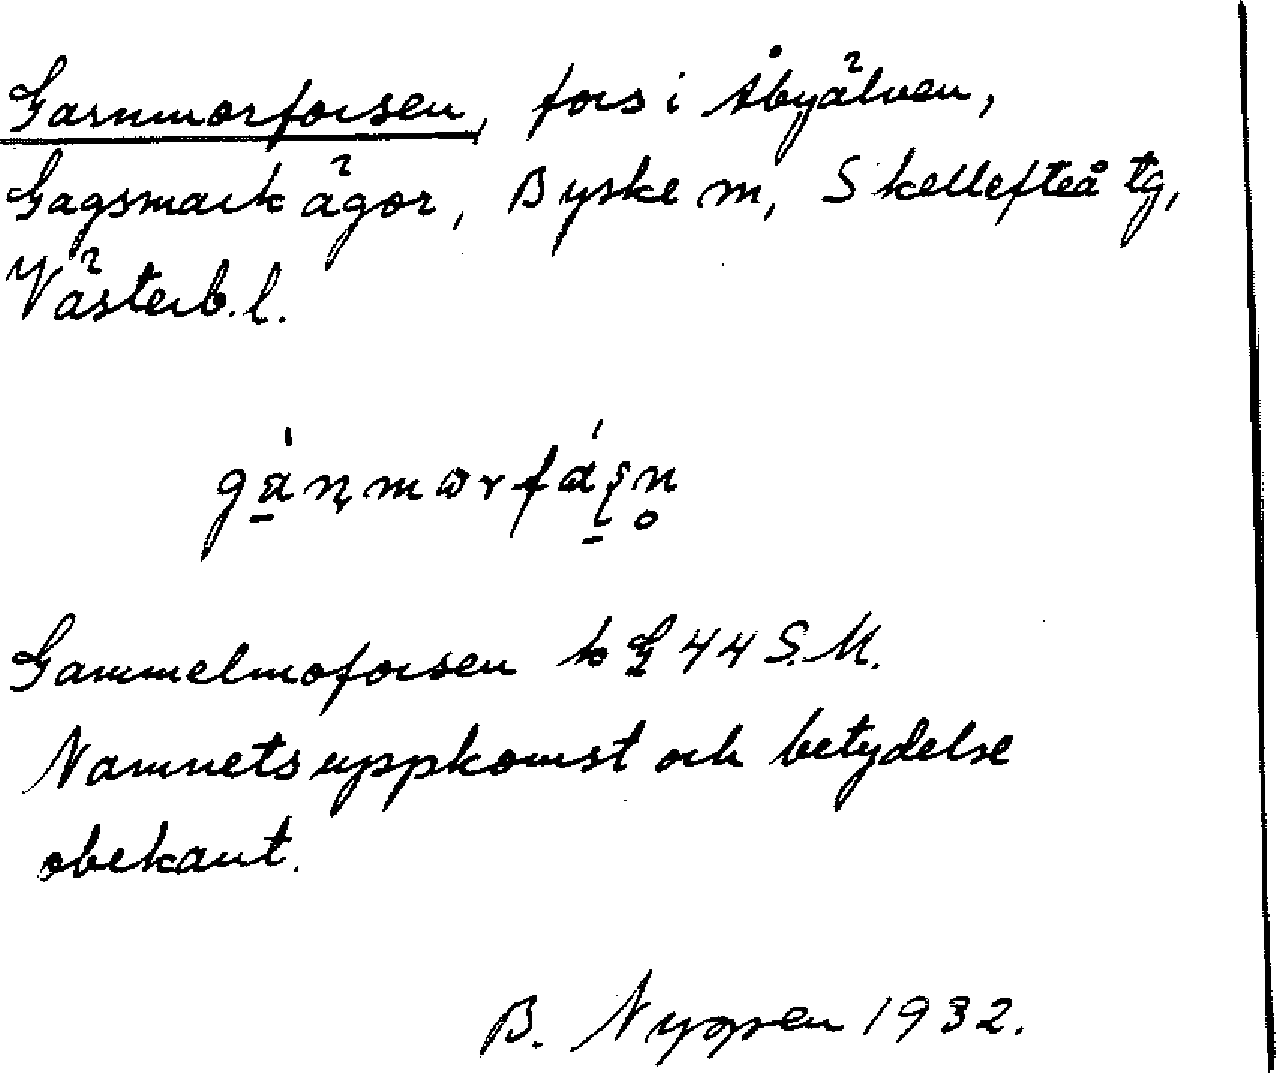 Garnmorforsen, fors i Åbyälven,
Gagsmark ägor, Byske sn, Skellefteå tg,
Västerb. l.
gàṇmorfáṣn̥
Gammelmoforsen k G 44 S.M.
Namnets uppkomst och betydelse
obekant.
B. 1932.